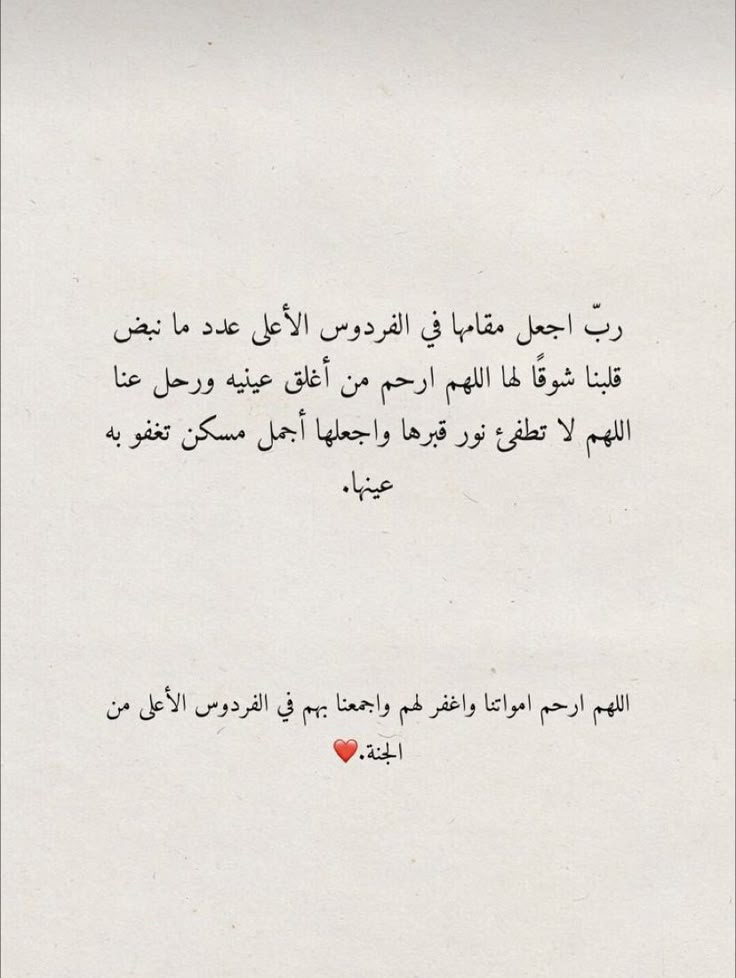 ربّ اجعل مقامها في الفردوس الأعلى عدد ما نبض
قلبنا شوقًا لها اللهم ارحم من أغلق عينيه ورحل عنا
اللهم لا تطفئ نور قبرها واجعلها أجمل مسكن تغفو به
عينها.
اللهم ارحم امواتنا واغفر لهم واجمعنا بهم في الفردوس الأعلى من
الجنة.❤️